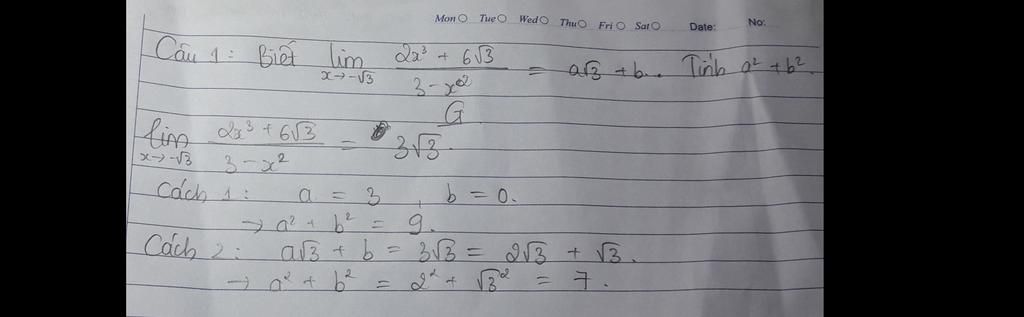 Mon Tue Wed Thu Fri Sat Date: No:
Câu 1: Biết lim x→-√3 (2x³ + 6√3)/(3 - x²) = a√3 + b. Tính a² + b².
G
lim x→-√3 (2x³ + 6√3)/(3 - x²) = 3√3.
Cách 1: a = 3, b = 0.
→ a² + b² = 9.
Cách 2: a√3 + b = 3√3 = 2√3 + √3.
→ a² + b² = 2² + √3² = 7.